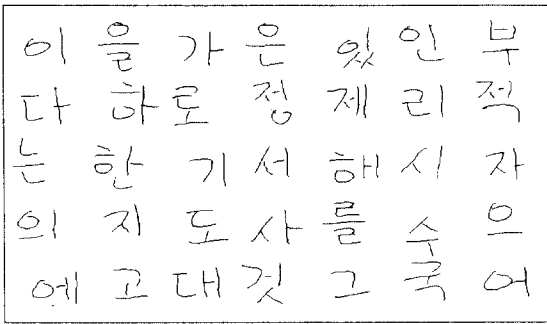 이 을 가 은 있 인 부
다 하 로 정 제 리 적
는 한 기 서 해 시 자
의 지 도 사 를 수 으
에 고 대 것 그 국 어